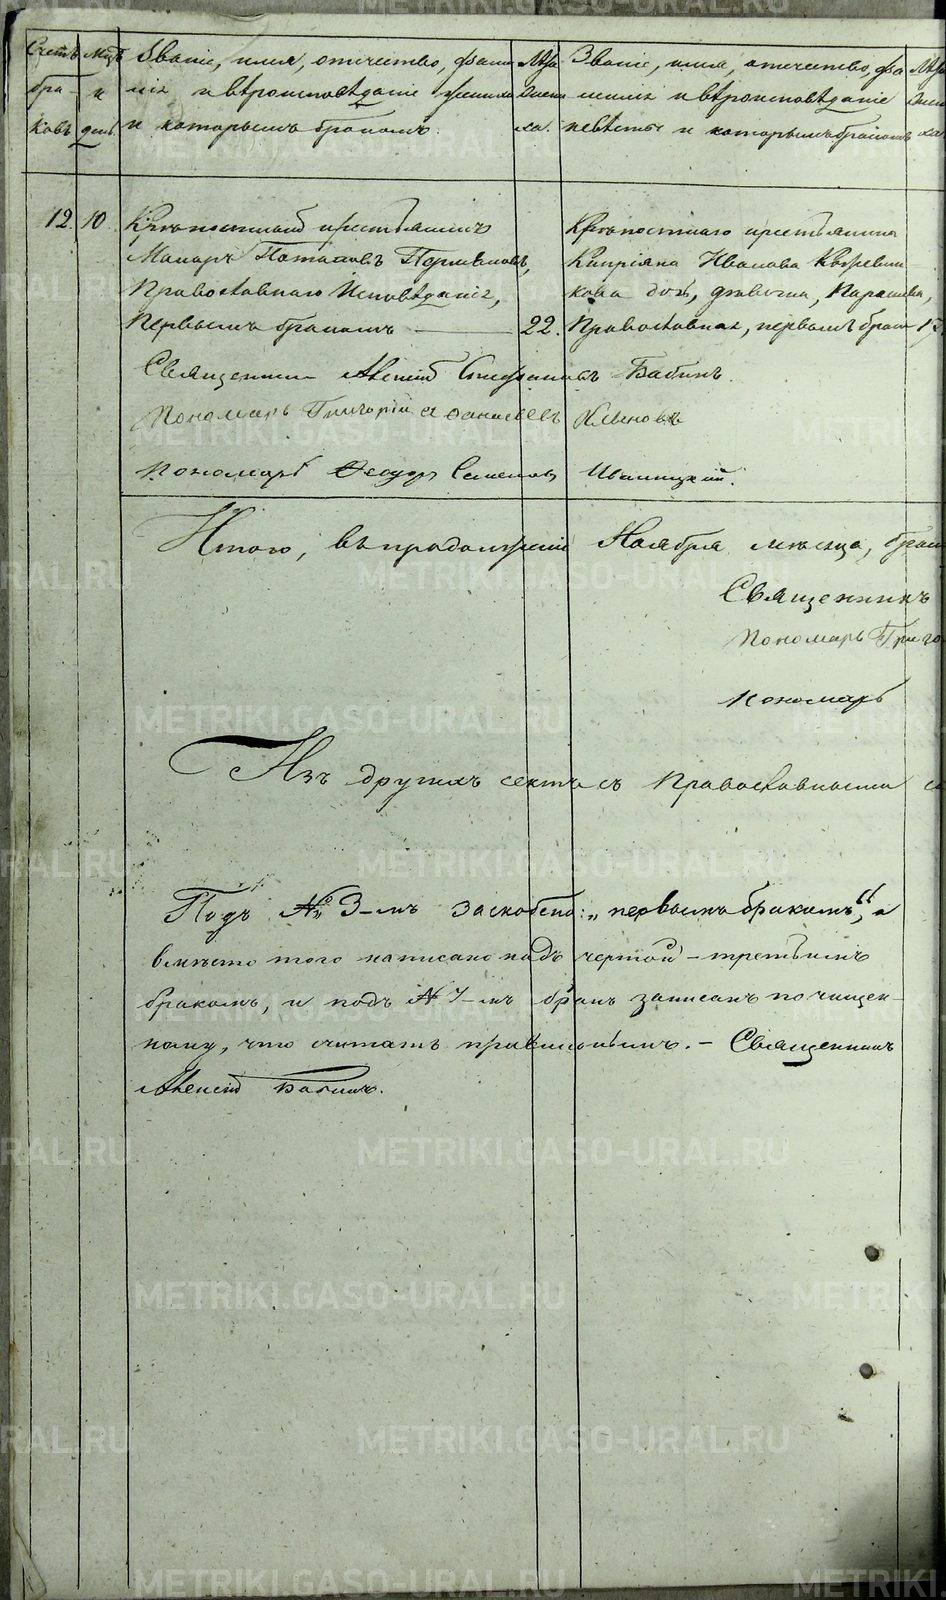 Счетъ бра- ковъ
Мцъ и день
Званіе, имя, отчество, фами- лія и вѣроисповѣданіе жениха и которымъ бракомъ.
Лѣта жени- ха.
Званіе, имя, отчество, фа- милія и вѣроисповѣданіе невѣсты и которымъ бракомъ
12. 10 Крѣпостный крестьянинъ
Макаръ Потаповъ
Православнаго Исповѣданія,
Первымъ бракомъ — 22.
Крѣпостнаго крестьянина
Кипріяна Иванова
кова дочь, дѣвица, Параскева,
Православная, первымъ брак 17
Священникъ Алексій Стефановъ Бабинъ.
Пономарь Григорій Аѳанасьевъ
Пономарь Ѳеодоръ Семеновъ
Итого, въ продолженіи Ноября мѣсяца, брак
Священникъ
Пономарь Григо
Пономарь
Изъ другихъ сектъ съ Православными
Подъ № 3-мъ заскоблено: „первымъ бракомъ", а
вмѣсто того написано надъ чертой – третьимъ
бракомъ, и подъ № 7-мъ бракъ записанъ по чищен-
ному, что считать правильнымъ. – Священникъ
Алексій Бабинъ.
METRIKI.GASO-URAL.RU